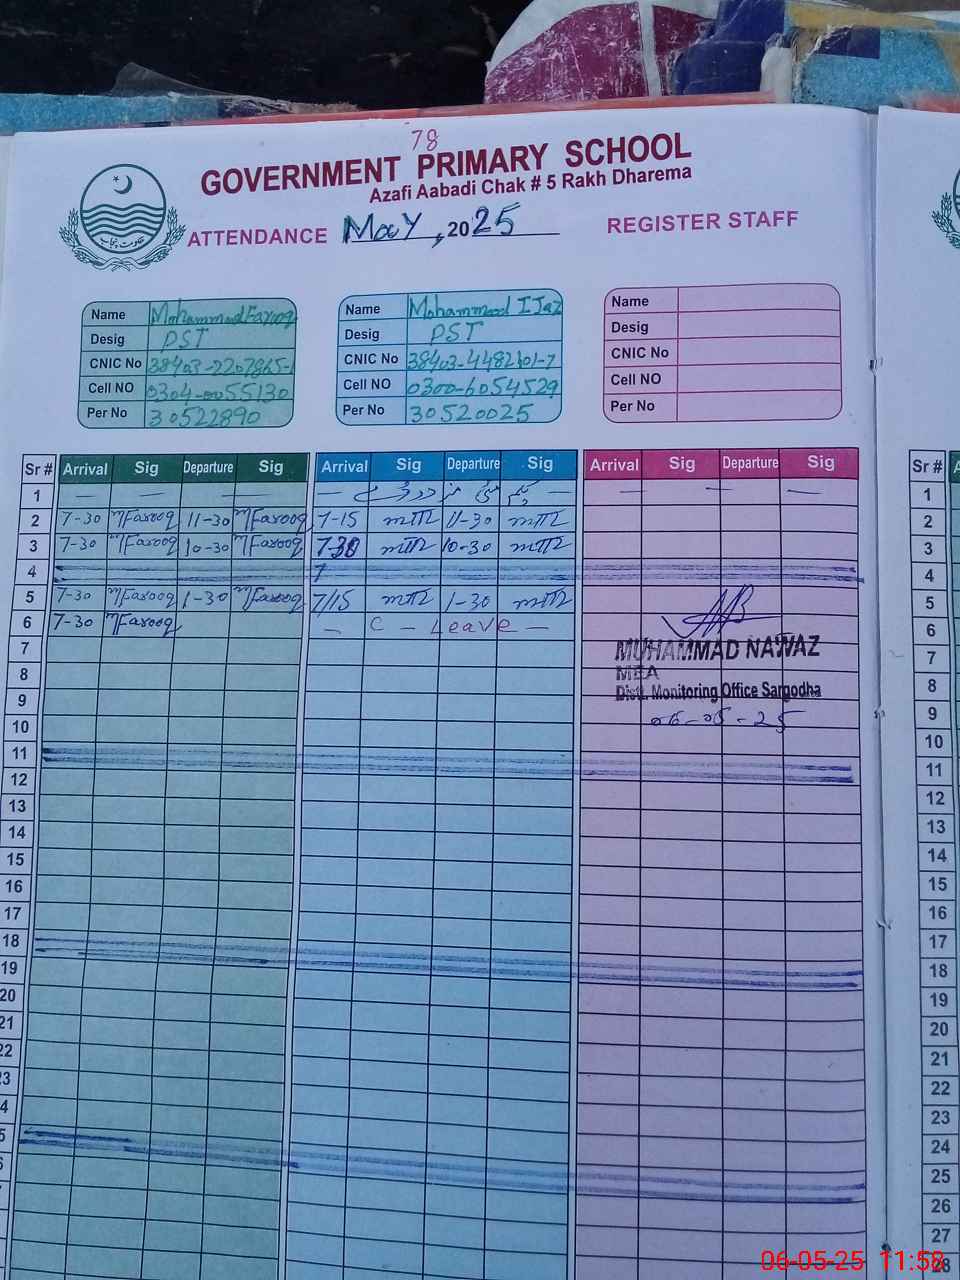 78
GOVERNMENT PRIMARY SCHOOL
Azafi Aabadi Chak # 5 Rakh Dharema
ATTENDANCE May, 2025 REGISTER STAFF
Name Mohammad Farooq
Desig PST
CNIC No 38403-2207865-1
Cell NO 0304-0055130
Per No 30522890
Name Mohammad IJaz
Desig PST
CNIC No
Cell NO 0300-6054529
Per No 30520025
Name
Desig
CNIC No
Cell NO
Per No
Sr # Arrival Sig Departure Sig Arrival Sig Departure Sig Arrival Sig Departure Sig Sr #
1 — — — — — — — — 1
2 7-30 MFarooq 11-30 MFarooq 7-15 11-30 2
3 7-30 MFarooq 10-30 MFarooq 7-30 10-30 3
4 7 4
5 7-30 MFarooq 1-30 MFarooq 7/15 1-30 5
6 7-30 MFarooq — C — Leave — 6
7 MUHAMMAD NAWAZ 7
8 MEA 8
9 Distt. Monitoring Office Sargodha 9
10 06-05-25 10
11 11
12 12
13 13
14 14
15 15
16 16
17 17
18 18
19 19
20 20
21 21
22 22
23 23
24
25
26
27
28
06-05-25 11:58